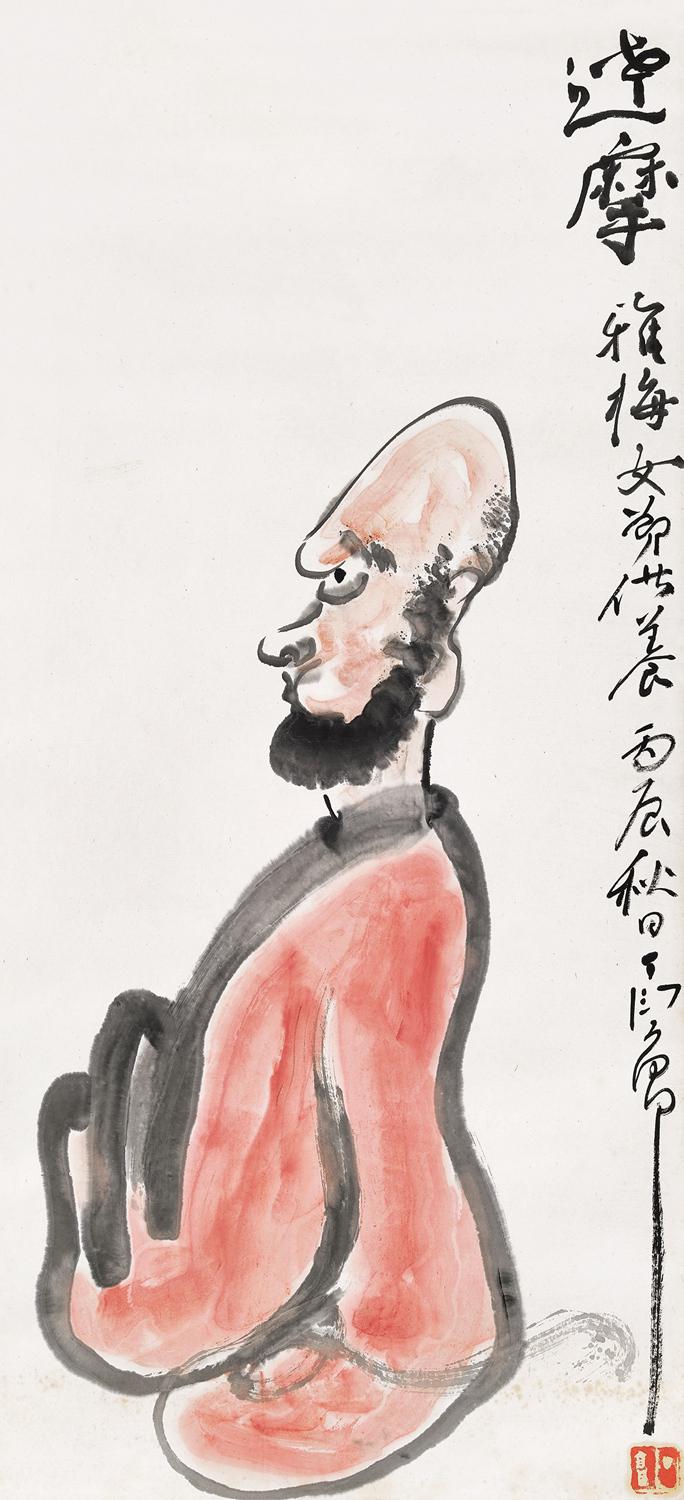 達摩 雅梅女供養 丙辰秋日 丁衍庸